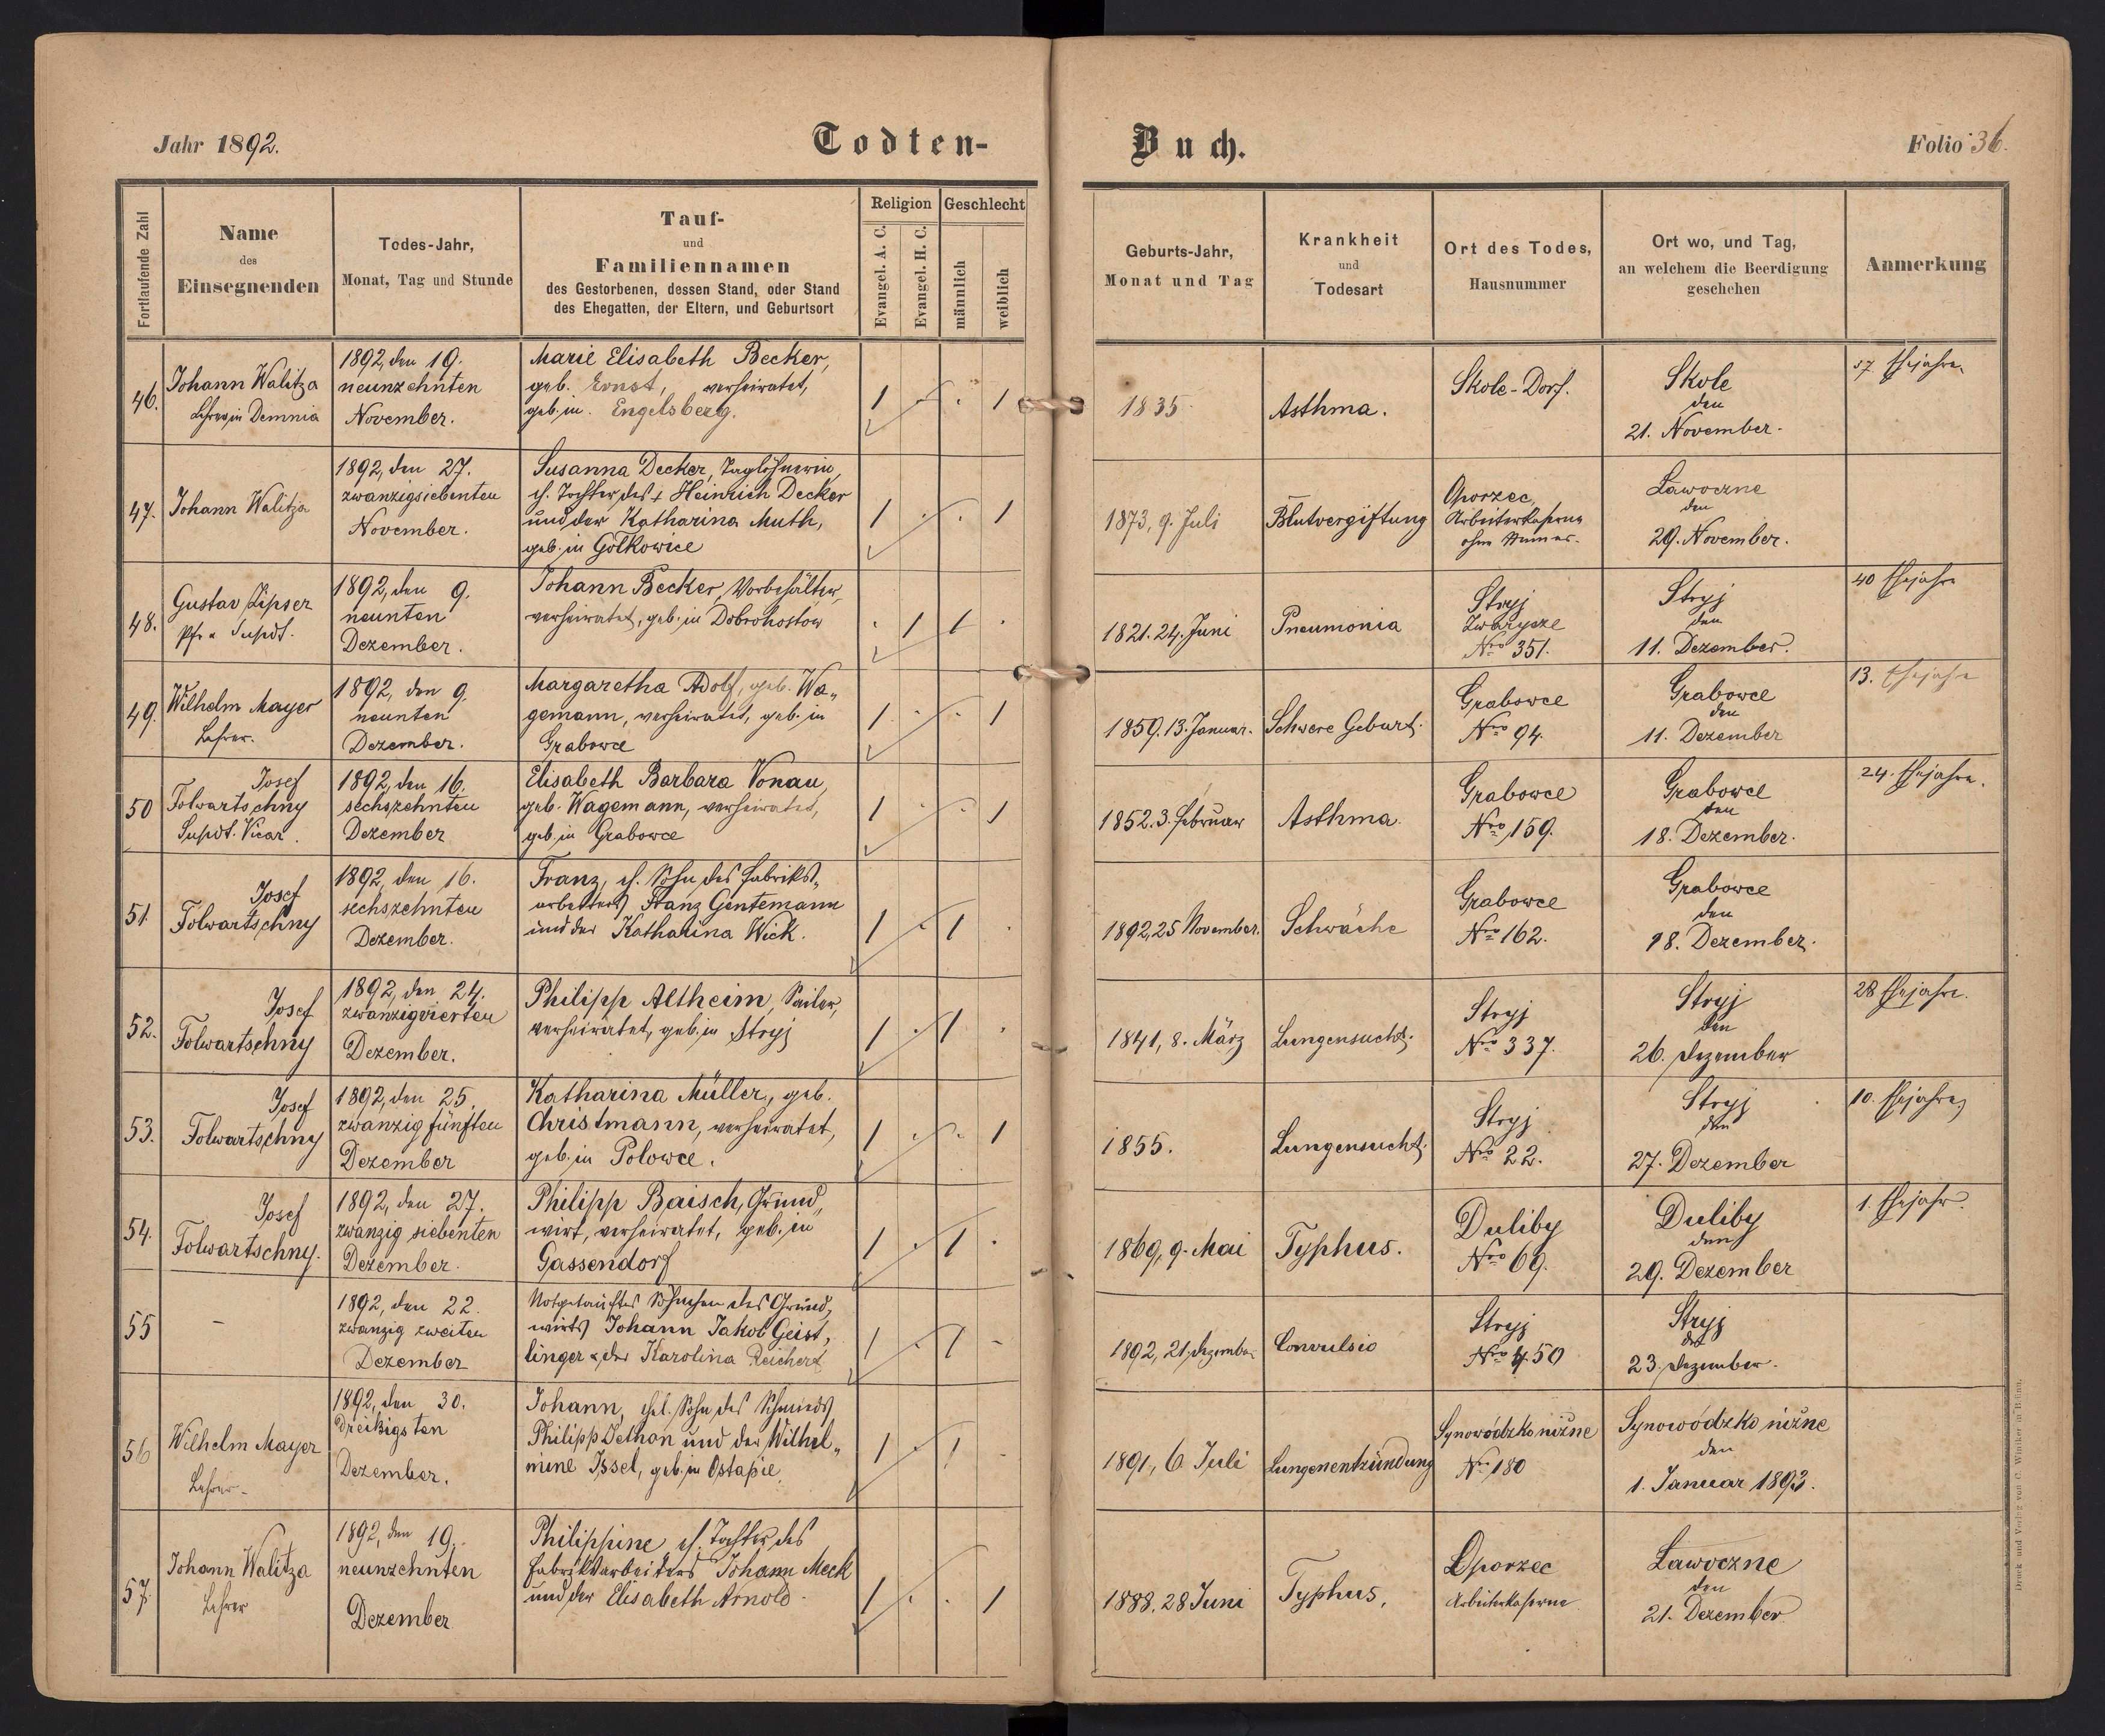 Jahr 1892.
Todten-
Buch.
Folio 36.
Fortlaufende Zahl
Name
des
Einsegnenden
Todes-Jahr,
Monat, Tag und Stunde
Tauf-
und
Familiennamen
des Gestorbenen, dessen Stand, oder Stand
des Ehegatten, der Eltern, und Geburtsort
Religion
Evangel. A. C.
Evangel. H. C.
Geschlecht
männlich
weiblich
Geburts-Jahr,
Monat und Tag
Krankheit
und
Todesart
Ort des Todes,
Hausnummer
Ort wo, und Tag,
an welchem die Beerdigung
geschehen
Anmerkung
46.
Johann Walitza
Lehrer in Demnia
1892, den 19.
neunzehnten
November.
Marie Elisabeth Becker,
geb. Ernst, verheiratet,
geb. in Engelsberg.
1 . . 1
1835
Asthma.
Skole-Dorf.
Skole
den
21. November.
37 Ehejahre
47.
Johann Walitza
1892, den 27.
zwanzigsiebenten
November.
Susanna Decker, Taglöhnerin,
eh. Tochter des + Heinrich Decker
und der Katharina Muth,
geb. in Gölkowice
1 . . 1
1873, 9. Juli
Blutvergiftung
Oporzec
Arbeiterkaserne
ohne Numer.
Lawoczne
den
29. November.
48.
Gustav Zipser
Pfr u Supdt.
1892, den 9.
neunten
Dezember.
Johann Becker, Vorbehälter,
verheiratet, geb. in Dobrohostow
. 1 1 .
1821. 24. Juni
Pneumonia
Stryj
Zwarycze
Nro 351.
Stryj
den
11. Dezember.
40 Ehejahre
49.
Wilhelm Mayer
Lehrer.
1892, den 9.
neunten
Dezember.
Margaretha Adolf, geb. Wa„
gemann, verheiratet, geb. in
Grabowce
1 . . 1
1859. 13. Januar.
Schwere Geburt.
Grabowce
Nro 94.
Grabowce
den
11. Dezember
13. Ehejahre
50
Josef
Folwartschny
Supdt. Vicar.
1892, den 16.
sechszehnten
Dezember
Elisabeth Barbara Vonau,
geb. Wagemann, verheiratet,
geb. in Grabowce
1 . . 1
1852. 3. Februar
Asthma.
Grabowce
Nro 159.
Grabowce
den
18. Dezember.
24. Ehejahre.
51.
Josef
Folwartschny
1892, den 16.
sechszehnten
Dezember.
Franz, eh. Sohn des Fabriks„
arbeiters Franz Gentemann
und der Katharina Wick.
1 . 1 .
1892, 25 November.
Schwäche
Grabowce
Nro 162.
Grabowce
den
18. Dezember.
52.
Josef
Folwartschny
1892, den 24.
zwanzigvierten
Dezember.
Philipp Altheim, Seiler,
verheiratet, geb. in Stryj
1 . 1 .
1841, 8. März
Lungensucht.
Stryj
Nro 337.
Stryj
den
26. Dezember
28 Ehejahre.
53.
Josef
Folwartschny
1892, den 25.
zwanzig fünften
Dezember
Katharina Müller, geb.
Christmann, verheiratet,
geb. in Polowce.
1 . . 1
1855.
Lungensucht.
Stryj
Nro 22.
Stryj
den
27. Dezember
10. Ehejahre
54.
Josef
Folwartschny.
1892, den 27.
zwanzig siebenten
Dezember.
Philipp Baisch, Grund„
wirt, verheiratet, geb. in
Gassendorf
1 . 1 .
1869, 9. Mai
Typhus.
Duliby
Nro 69.
Duliby
den
29. Dezember
1. Ehejahr.
55
-
1892, den 22.
zwanzig zweiten
Dezember
Notgetauftes Söhnchen des Grund„
wirts Johann Jakob Geist„
linger u. der Karolina Reichert
1 . 1 -
1892, 21. Dezember
Convulsio
Stryj
Nro 450
Stryj
den
23. Dezember.
56
Wilhelm Mayer
Lehrer.
1892, den 30.
Dreißigsten
Dezember.
Johann, ehel. Sohn des Schmieds
Philipp Dethan und der Wilhel„
mine Issel, geb. in Ostapie.
1 . 1 .
1891, 6. Juli
Lungenentzündung
Synowódzko niżne
Nr. 180
Synowódzko niżne
den
1. Januar 1893.
57.
Johann Walitza
Lehrer
1892, den 19.
neunzehnten
Dezember
Philippine eh. Tochter des
Fabriksarbeiters Johann Meck
und der Elisabeth Arnold.
1 . . 1
1888, 28 Juni
Typhus,
Oporzec
Arbeiterkaserne
Lawoczne
den
21. Dezember